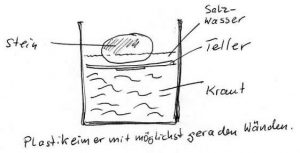 Salz-
wasser
Stein
Teller
Kraut
Plastikeimer mit möglichst geraden Wänden.